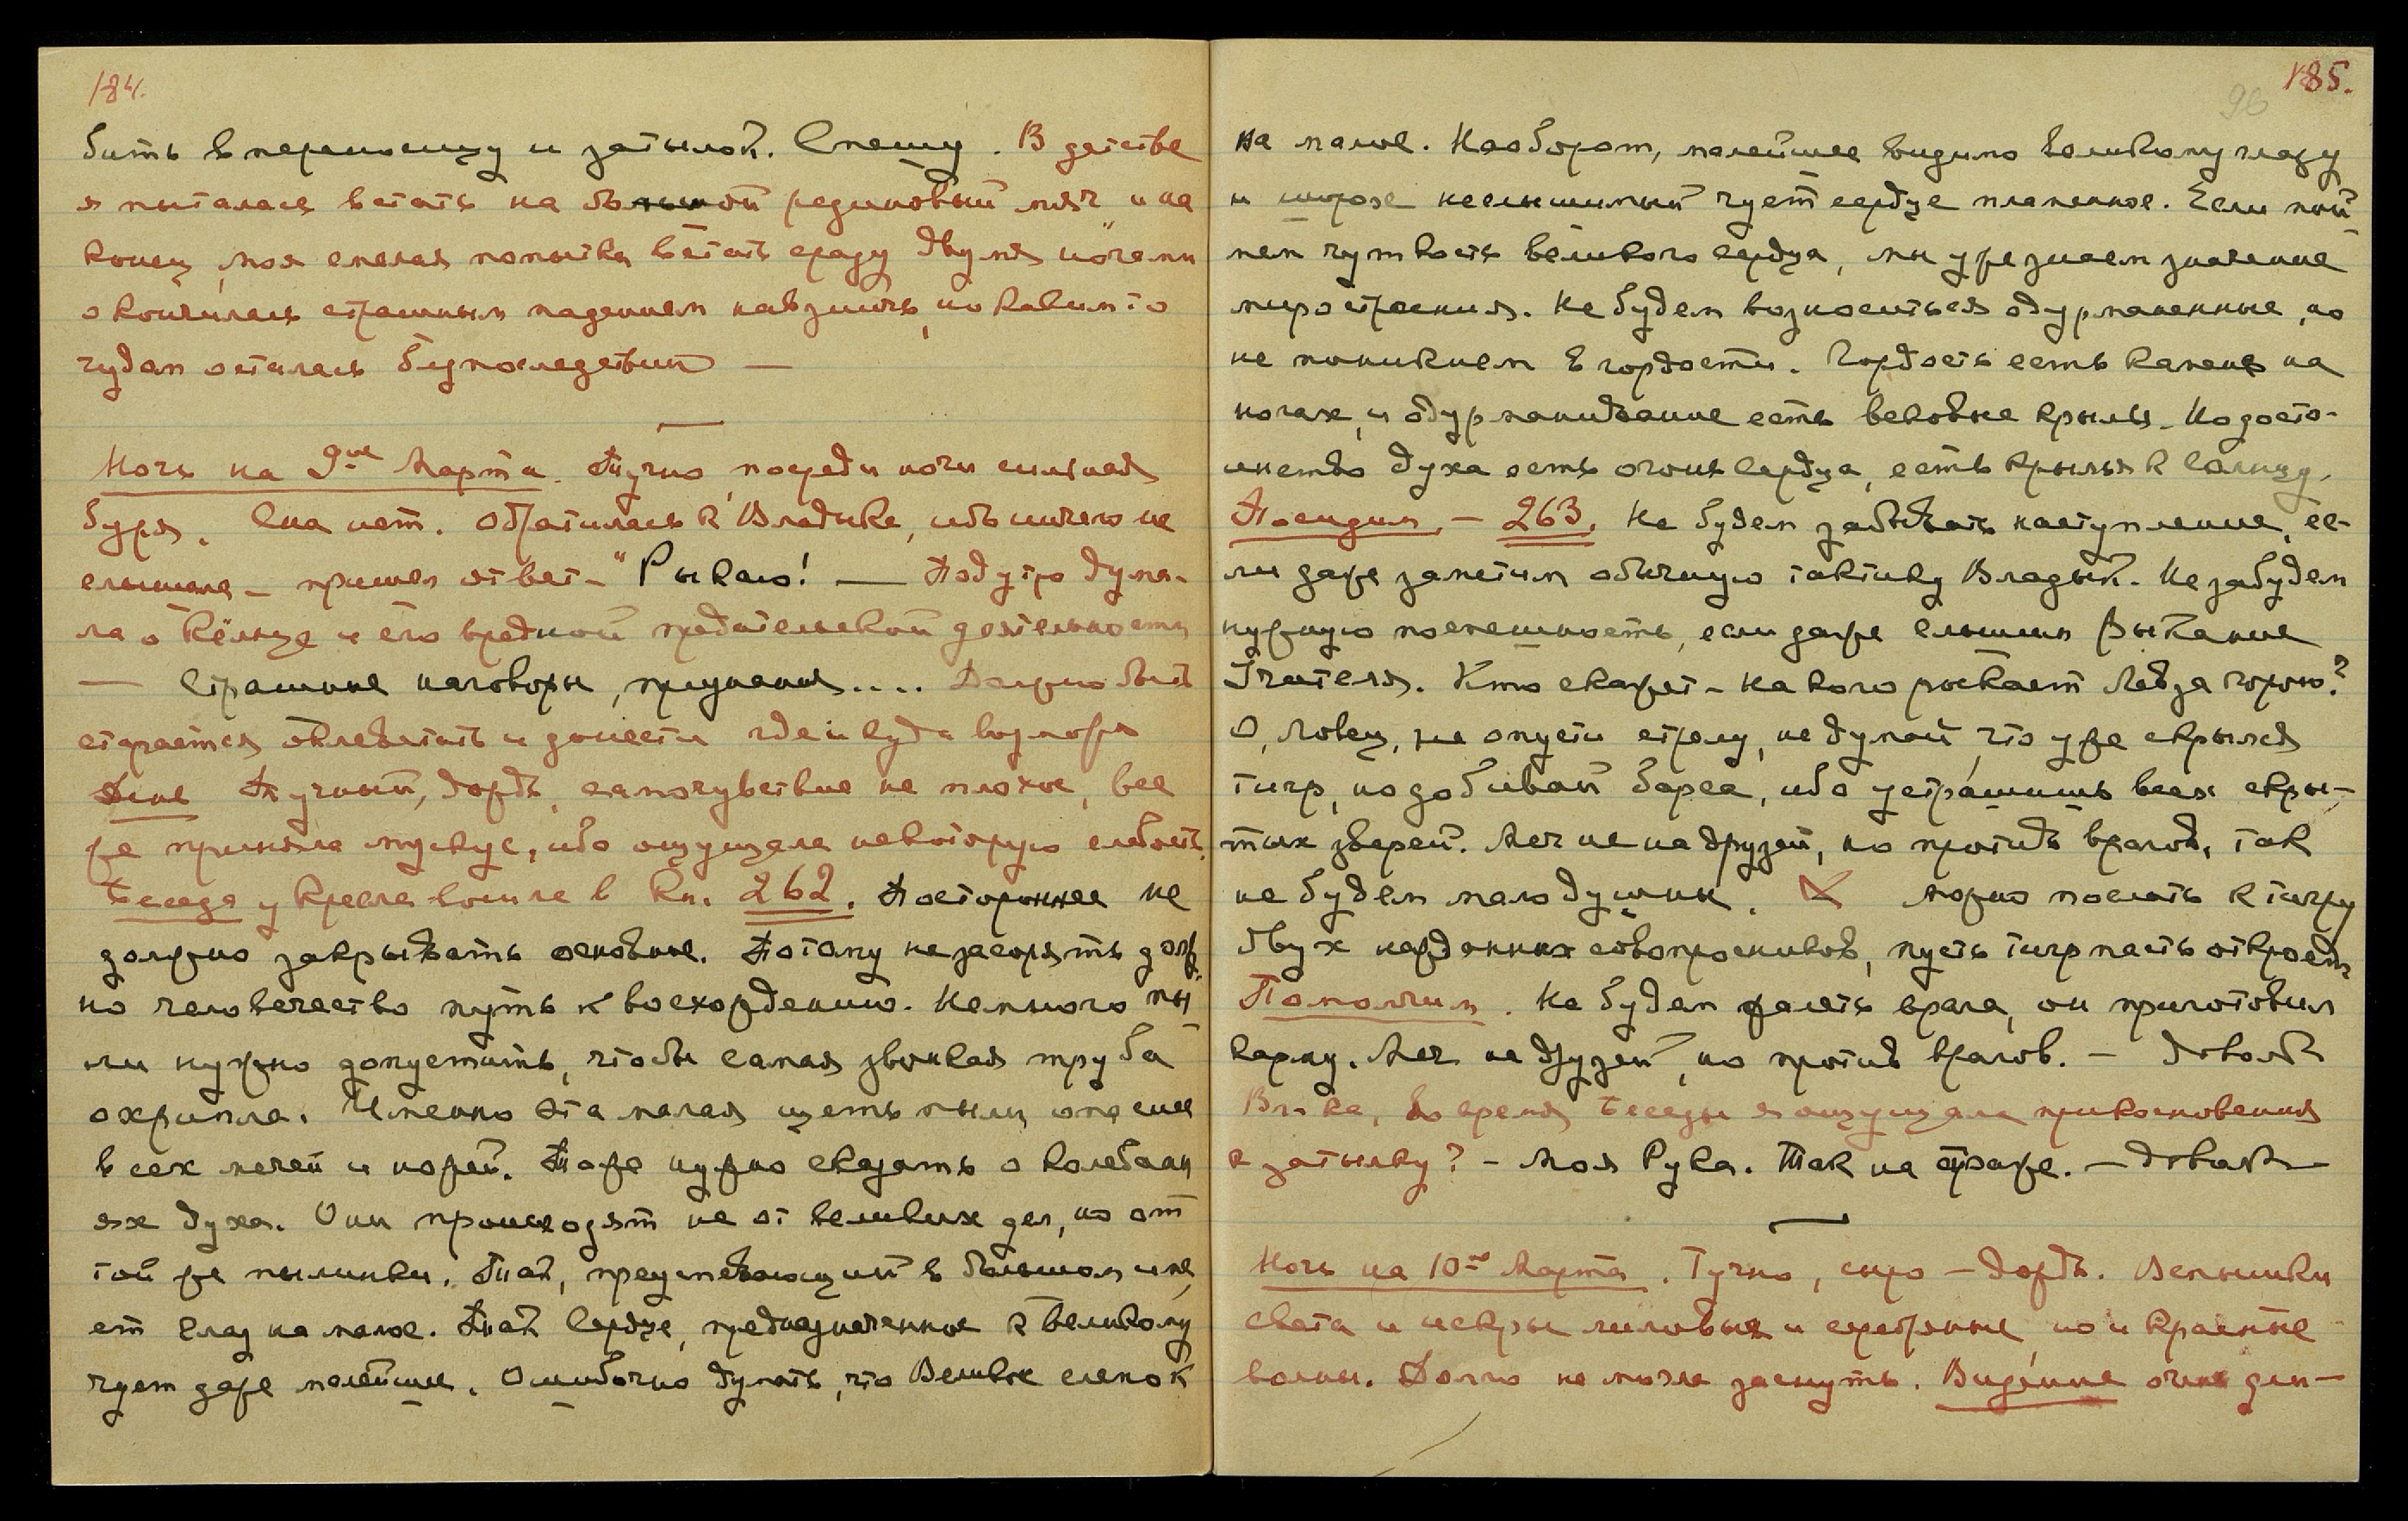 184.
бить в переносицу и затылок. Спешу. В детстве
я пыталась встать на большой резиновый мяч и на
конец, моя смелая попытка встать сразу двумя ногами
окончилась страшным падением навзничь, но каким то
чудом осталась без последствий —
Ночь на 9ое Марта. Тучно, посреди ночи сильная
буря. Сна нет. Обратилась к Владыке, ибо ничего не
слышала — пришел ответ — "Рыкаю! — Под утро дума-
ла о и его вредной предательской деятельности
— Страшные наговоры, .... Должно быть
старается оклеветать и донести где и куда возможно
День Тучный, дождь, самочувствие не плохое, все
же приняла мускус, ибо ощущала некоторую слабость.
Беседа у кресла вошла в кн. 262. Постороннее не
должно закрывать основное. Потому не засорять долж
но человечество путь к восхождению. Немного пы
ли нужно допустить, чтобы самая звонкая труба
охрипла. Именно эта малая щепть пыли опаснее
всех мечей и ножей. Тоже нужно сказать о колебани
ях духа. Они происходят не от великих дел, но от
той же пылинки. Так, преуспевающий в большом име
ет глаз на малое. Так Сердце, предназначенное к великому
чует даже малейшее. Ошибочно думать, что Великое слепо к
185.
96
на малое. Наоборот, малейшее видимо великому глазу
и шорох неслышимый чует сердце пламенное. Если пой
мем чуткость великого сердца, мы уже знаем значение
миростроения. Не будем возноситься одурманенные, но
не поникнем в гордости. Гордость есть камень на
ногах, и одурманивание есть восковые крылья. Но досто-
инство духа есть огонь сердца, есть крылья к Солнцу.
Посидим. — 263. Не будем забывать наступление, ес-
ли даже заметим обычную тактику Владык. Не забудем
нужную поспешность, если даже слышим рыкание
Учителя. Кто скажет — на кого рыкает Лев за горою?
О, Ловец, не опусти стрелу, не думай, что уже скрылся
тигр, но добивай барса, ибо устрашишь всех скры-
тых зверей. Меч не на друзей, но против врагов, так
не будем малодушны. можно послать к тигру
двух совопросников, пусть тигр пасть откроет
Помолчим. Не будем жалеть врага, он приготовил
карму. Меч не на друзей, но против врагов. — Довольно
Вл-ка, во время Беседы я ощущала прикосновения
к затылку? — Моя Рука. Так на страже. — Довольно
Ночь на 10ое Марта. Тучно, сыро — дождь. Вспышки
света и искры лиловые и серебряные, но и красные
волны. Долго не могла заснуть. Видение очень длин-